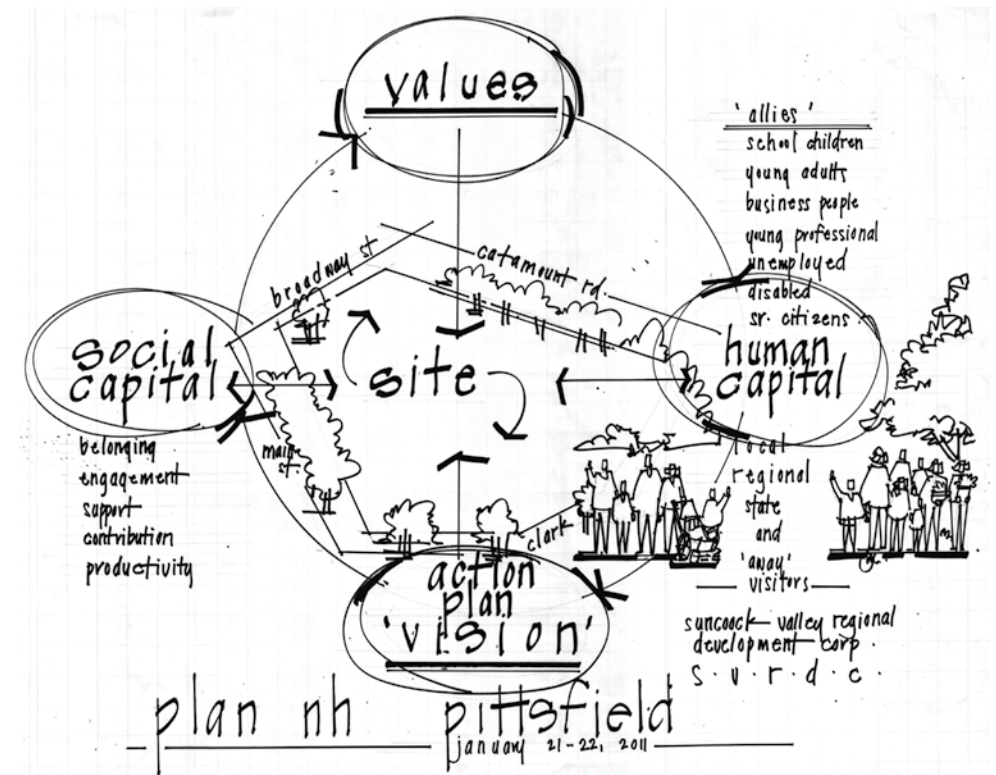 values
'allies'
school children
young adults
business people
young professional
unemployed
disabled
sr. citizens
broadway st
catamount rd.
social
capital
site
human
capital
belonging
engagement
support
contribution
productivity
main
st.
clark
local
regional
state
and
'away'
visitors
action
plan
'vision'
suncook valley regional
development corp.
s.v.r.d.c.
plan nh pittsfield
january 21-22, 2011